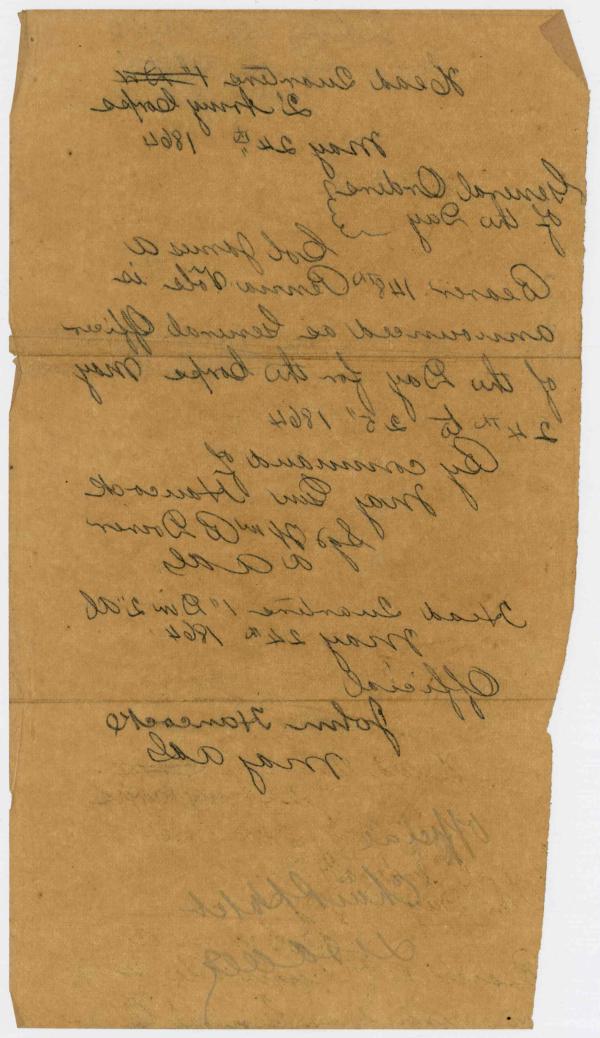 Head Quarters 1" Div
2" Army Corps
May 24th 1864
General Orders
of the Day
Col James A
Beaver 148th Penna Vols is
announced as General Officer
of the Day for the Corps May
24th to 25" 1864
By command of
Maj Gen Hancock
Sgd
A A G
Head Quarters 1" Div 2" AC
May 24th 1864
Official
John Hancock
Maj AAG
Official